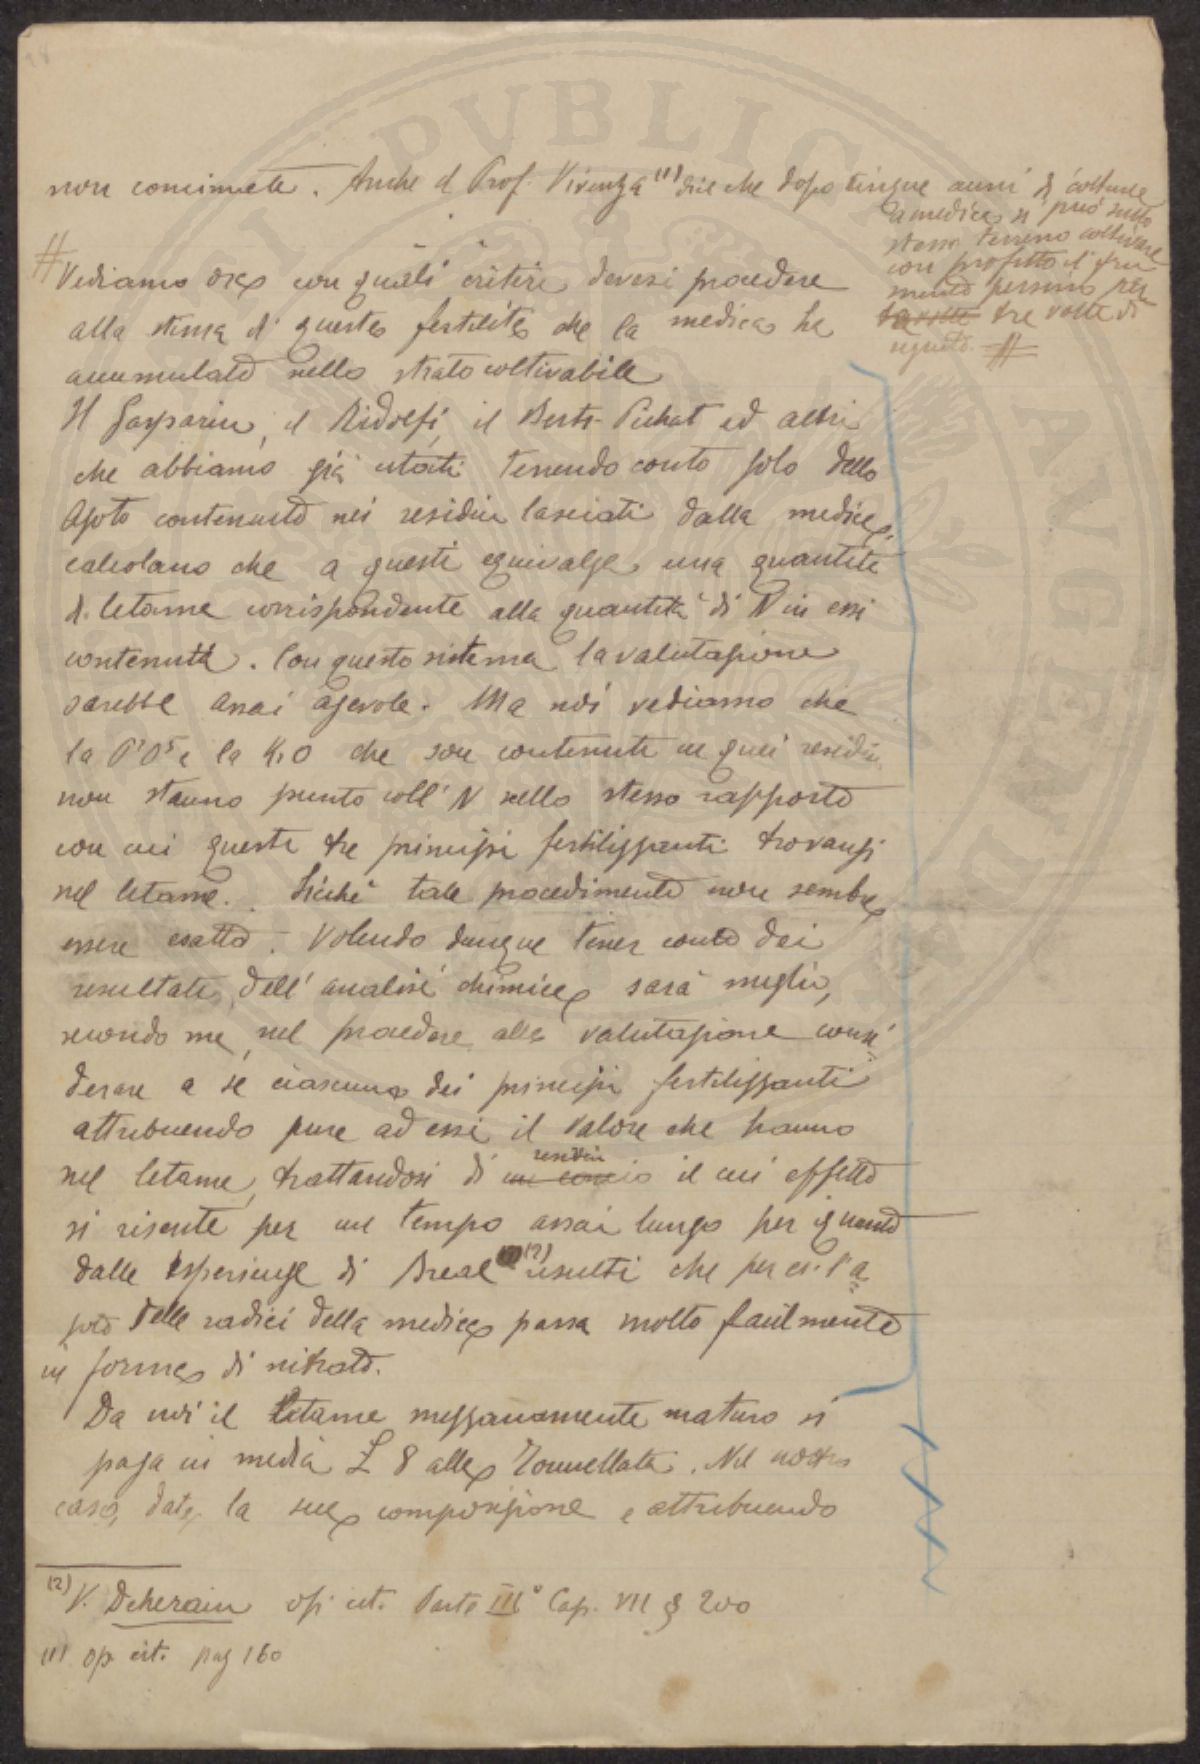 non concimata. Anche il Prof. Vivenza (1) dice che dopo cinque anni di coltura
a medica si può sullo
stesso terreno coltivare
con profitto il fru
mento persino per
tre volte di
seguito. #
# Vediamo ora con quali criteri devesi procedere
alla stima di questa fertilità che la medica ha
accumulato nello strato coltivabile
Il Gasparin, il Ridolfi, il Berti-Pichat ed altri
che abbiamo già citati tenendo conto solo dello
Azoto contenuto nei residui lasciati dalla medica,
calcolano che a questi equivalga una quantità
di letame corrispondente alla quantità di N in essi
contenuta. Con questo sistema la valutazione
sarebbe assai agevole. Ma noi vediamo che
la P²O⁵ e la K₂O che son contenute in quei residui
non stanno punto coll'N nello stesso rapporto
con cui questi tre principi fertilizzanti trovansi
nel letame. Sicché tale procedimento non sembra
essere esatto. Volendo dunque tener conto dei
resultati dell'analisi chimica sarà meglio,
secondo me, nel procedere alla valutazione consi
derare a sé ciascuno dei principi fertilizzanti
attribuendo pure ad essi il valore che hanno
residui
nel letame, trattandosi di un concio il cui effetto
si risente per un tempo assai lungo per quanto
dalle esperienze di Breal (2) risulti che per es. l'a
zoto delle radici della medica passa molto facilmente
in forma di nitrato.
Da noi il letame mezzanamente maturo si
paga in media £ 8 alla Tonnellata. Nel nostro
caso, data la sua composizione e attribuendo
(2) V. Deherain op. cit. Parte III° Cap. VII § 200
(1) op. cit. pag 160